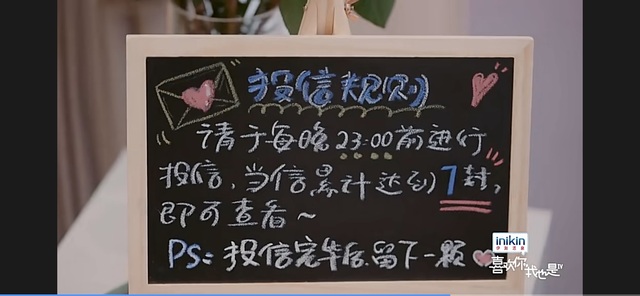 投信规则
请于每晚23:00前进行
投信,当信累计达到7封,
即可查看~
PS:投信完毕后,留下一颗
inikin
伊肤泉
喜欢你我也是